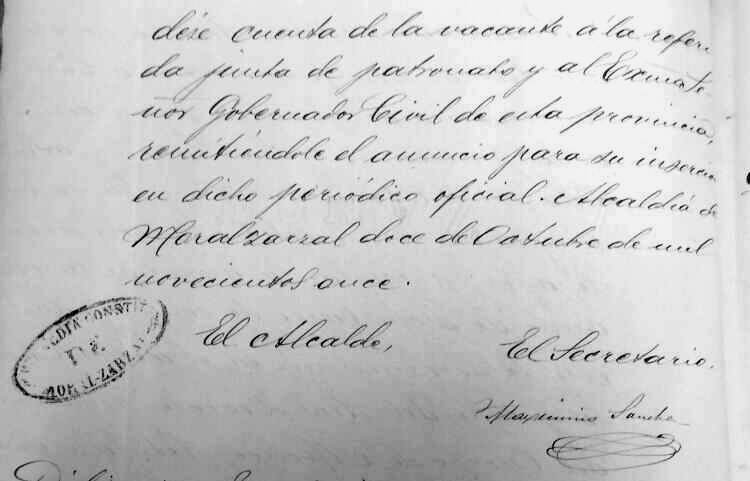 dése cuenta de la vacante á la referi
da junta de patronato y al Exmo Se
ñor Gobernador Civil de esta provincia,
remitiéndole el anuncio para su inserción
en dicho periódico oficial. Alcaldia de
Moralzarzal doce de Octubre de mil
novecientos once.
El Alcalde,
El Secretario,
ALCALDIA CONSTIT
DE
MORAL-ZARZAL
Maximino Sanchez